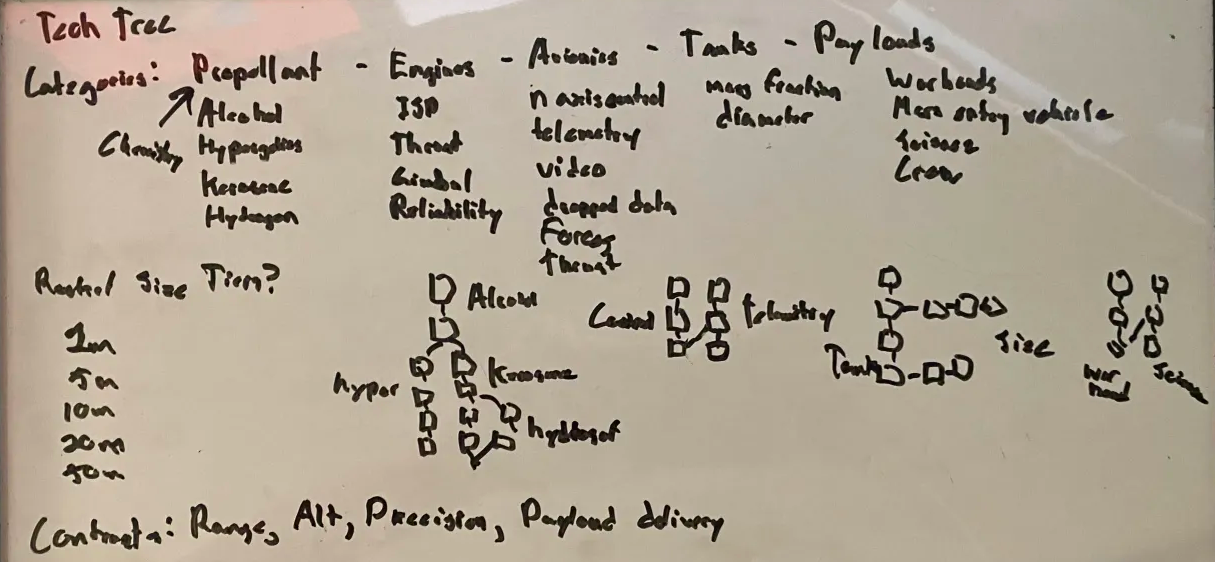 Tech Tree
Categories: Propellant - Engines - Avionics - Tanks - Payloads
Chemistry
Alcohol
Hypergolics
Kerosene
Hydrogen
ISP
Thrust
Gimbal
Reliability
n axis control
telemetry
video
dropped data
Forces
thrust
mass fraction
diameter
Warheads
Mars entry vehicle
Science
Crew
Rocket Size Tiers?
1m
5m
10m
20m
50m
Alcohol
hyper
Kerosene
hydrogen
Control
telemetry
Tank
Size
War
head
Science
Contracts: Range, Alt, Precision, Payload delivery